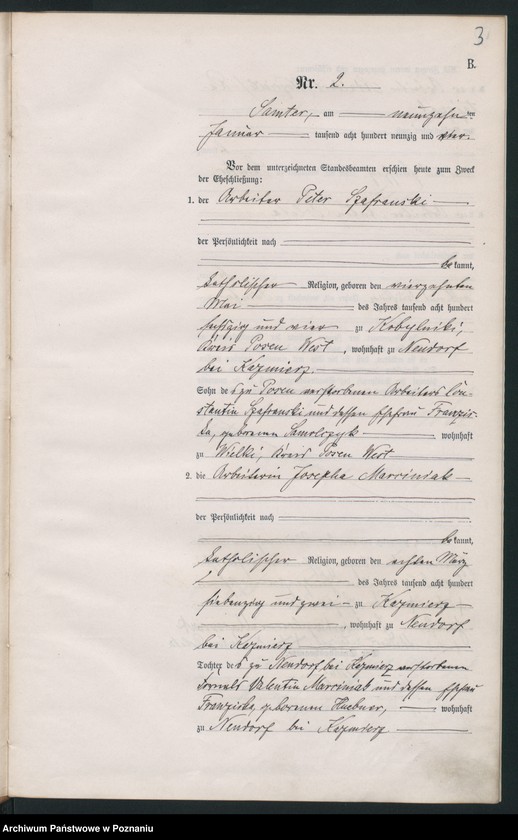 3
B.
Nr. 2.
Samter, am neunzehnten
Januar tausend acht hundert neunzig und vier
Vor dem unterzeichneten Standesbeamten erschien heute zum Zweck
der Eheschließung:
1. der Arbeiter Peter Szafranski
der Persönlichkeit nach
bekannt,
katholischer Religion, geboren den vierzehnten
Mai des Jahres tausend acht hundert
fünfzig und vier zu Kobylniki,
Kreis Posen West, wohnhaft zu Neudorf
bei Kazmierz
Sohn des zu Posen verstorbenen Arbeiters Con-
stantin Szafranski und dessen Ehefrau Franzis-
ka, geborenen wohnhaft
zu Wielki, Kreis Posen West
2. die Arbeiterin Josepha Marciniak
der Persönlichkeit nach
bekannt,
katholischer Religion, geboren den achten März
des Jahres tausend acht hundert
siebenzig und zwei zu Kazmierz
, wohnhaft zu Neudorf
bei Kazmierz
Tochter des zu Neudorf bei Kazmierz verstorbenen
Valentin Marciniak und dessen Ehefrau
Franziska, geborenen Huebner, wohnhaft
zu Neudorf bei Kazmierz
Archiwum Państwowe w Poznaniu